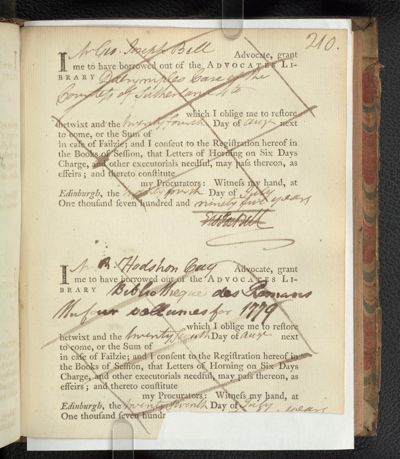 210.
I Mr Geo. Joseph Bell Advocate, grant
me to have borrowed out of the ADVOCATES LI-
BRARY Dalrymples Case of the
Countess of Sutherland 4to
which I oblige me to restore
betwixt and the twenty fourth Day of Augt next
to come, or the Sum of
in case of Failzie; and I consent to the Registration hereof in
the Books of Session, that Letters of Horning on Six Days
Charge, and other executorials needful, may pass thereon, as
effeirs; and thereto constitute
my Procurators: Witness my hand, at
Edinburgh, the twenty fourth Day of July
One thousand seven hundred and ninety five years
I Mr R. Hodshon Cay Advocate, grant
me to have borrowed out of the ADVOCATES LI-
BRARY Bibliotheque des Romans
the four volumes for 1779
which I oblige me to restore
betwixt and the twenty Day of Augt next
to come, or the Sum of
in case of Failzie; and I consent to the Registration hereof in
the Books of Session, that Letters of Horning on Six Days
Charge, and other executorials needful, may pass thereon, as
effeirs; and thereto constitute
my Procurators: Witness my hand, at
Edinburgh, the twenty seventh Day of July
One thousand seven hundr years